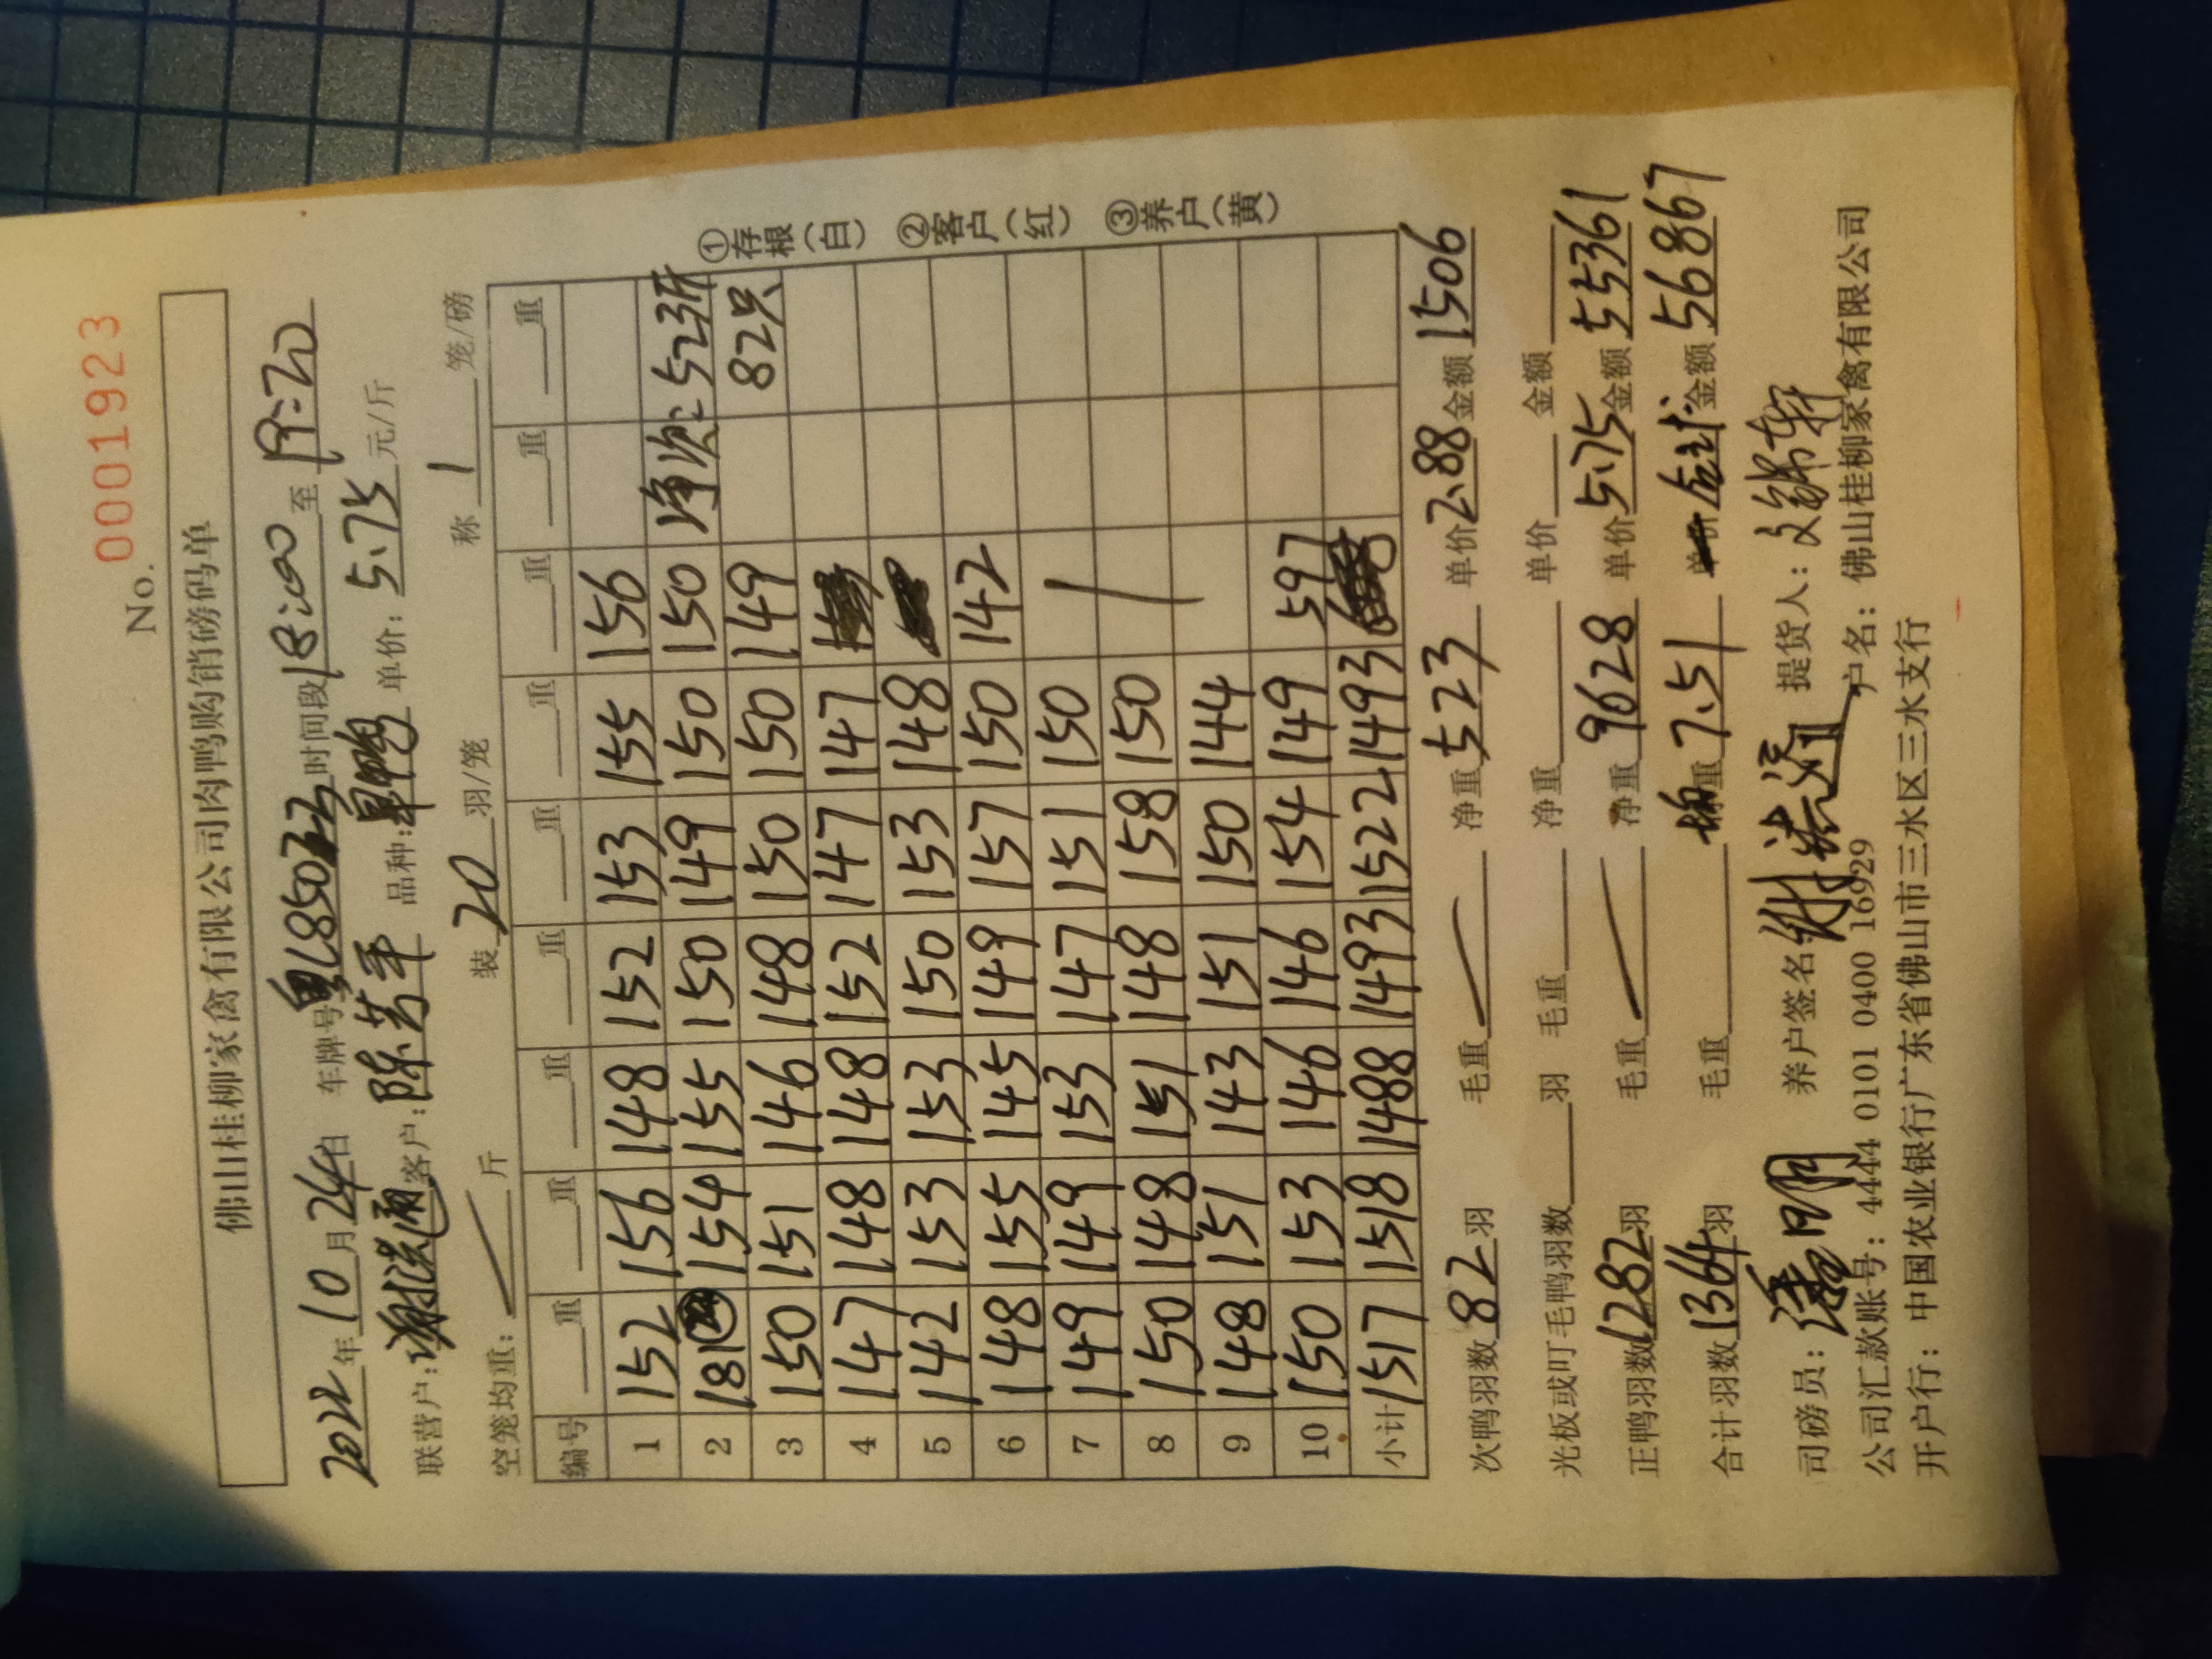 No. 0001923
佛山桂柳家禽有限公司肉鸭购销磅码单
2022年10月24日 车牌号 L8507 时间段18:00至19:20
联营户: 客户:陈芳平 品种: 单价:5.75元/斤
空笼均重: 斤 装20羽/笼 称1笼/磅
编号 重 重 重 重 重 重 重 重 重
1 152 156 148 152 153 155 156
2 181 154 155 150 149 150 150 净次: 523斤
3 150 151 146 148 150 150 149 82只
4 147 148 148 152 147 147
5 142 153 153 150 153 148
6 148 155 145 149 157 150 142
7 149 149 153 147 151 150
8 150 148 151 148 158 150
9 148 151 143 151 150 144
10 150 153 146 146 154 149 597
小计 1517 1518 1488 1493 1522 1493
①存根(白) ②客户(红) ③养户(黄)
次鸭羽数82羽 毛重 净重523 单价2.88金额1506
光板或叮毛鸭羽数 羽 毛重 净重 单价 金额
正鸭羽数1282羽 毛重 净重9628 单价5.75金额55361
合计羽数1364羽 毛重 7.51 金额56867
司磅员: 养户签名 提货人:
公司汇款账号: 4444 0101 0400 16929 户名: 佛山桂柳家禽有限公司
开户行: 中国农业银行广东省佛山市三水区三水支行